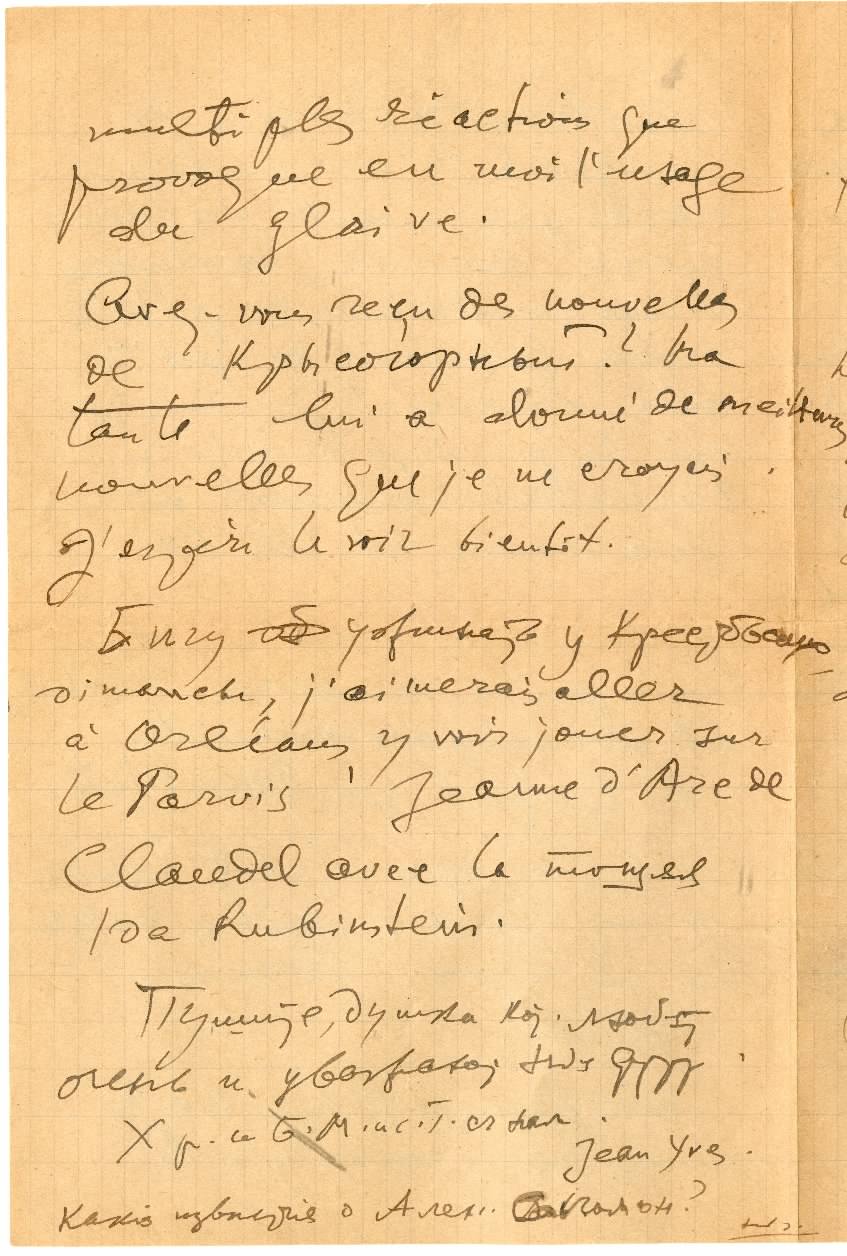 multiples réactions que
provoque en moi l'usage
du glaive.
Avez-vous reçu des nouvelles
de ? Ma
tante lui a donné de meilleures
nouvelles que je ne croyais.
J'espère le voir bientôt.
у
dimanche, j'aimerais aller
à Orléans y voir jouer sur
le Parvis Jeanne d'Arc de
Claudel avec la тощая
Ida Rubinstein.
Пишите, душка
очень и
Х р. и Б. М. и с. Т. с нам.
Jean Yves.
Какие известия о Алек. ?